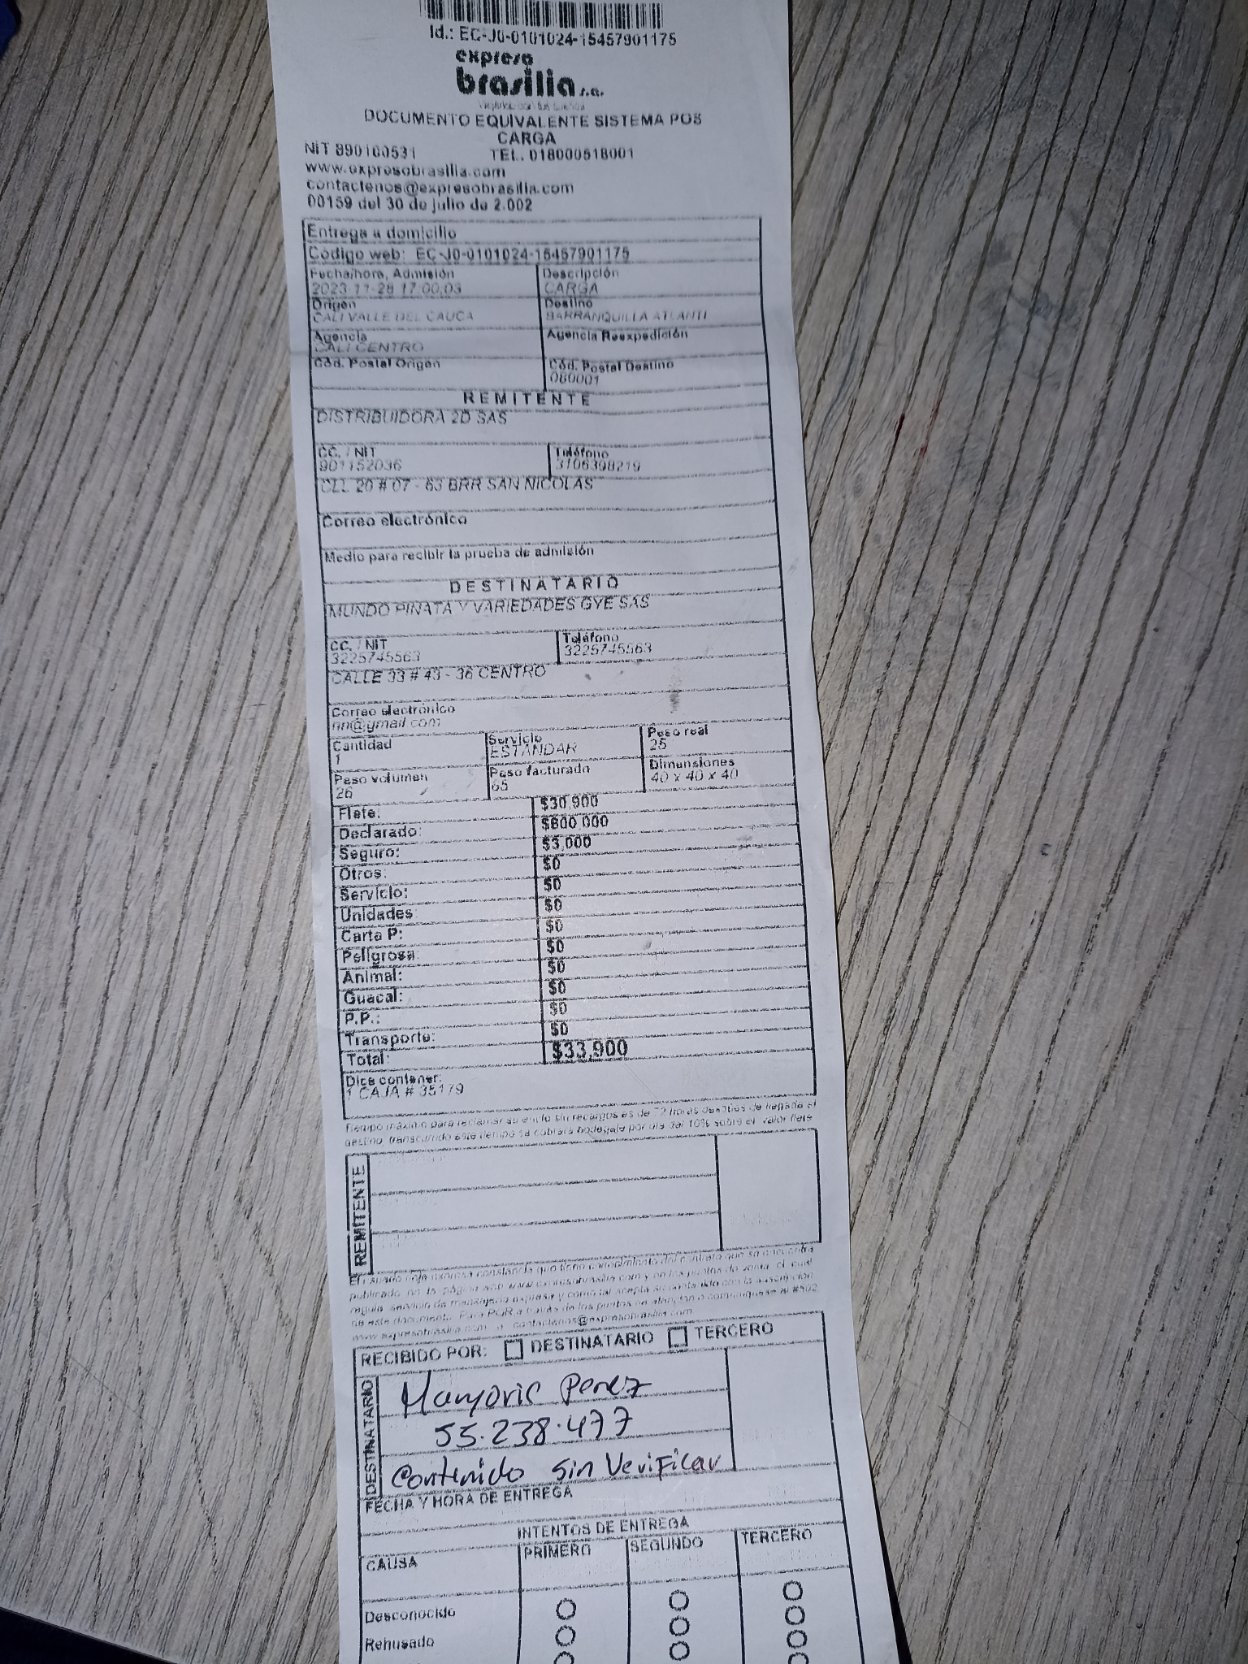 Id.: EC-J0-0101024-15457901175
expreso
brasilia s.a.
DOCUMENTO EQUIVALENTE SISTEMA POS
CARGA
NIT 890100531 TEL. 018000518001
www.expresobrasilia.com
contactenos@expresobrasilia.com
00159 del 30 de julio de 2.002
Entrega a domicilio
Código web: EC-J0-0101024-15457901175
Fecha/hora, Admisión Descripción
2023-11-28 17:00:03 CARGA
Origen Destino
CALI VALLE DEL CAUCA BARRANQUILLA ATLANTI
Agencia Agencia Reexpedición
CALI CENTRO
Cód. Postal Origen Cód. Postal Destino
080001
REMITENTE
DISTRIBUIDORA 2D SAS
CC. / NIT Teléfono
901152036 3106398219
CLL 20 # 07 - 63 BRR SAN NICOLAS
Correo electrónico
Medio para recibir la prueba de admisión
DESTINATARIO
MUNDO PINATA Y VARIEDADES GYE SAS
CC. / NIT Teléfono
3225745563 3225745563
CALLE 33 # 43 - 36 CENTRO
Correo electrónico
nn@gmail.com
Cantidad Servicio Peso real
1 ESTANDAR 25
Peso volumen Peso facturado Dimensiones
26 65 40 x 40 x 40
Flete: $30,900
Declarado: $600,000
Seguro: $3,000
Otros: $0
Servicio: $0
Unidades $0
Carta P: $0
Peligrosa: $0
Animal: $0
Guacal: $0
P.P.: $0
Transporte: $0
Total: $33,900
Dice contener:
1 CAJA # 35179
Tiempo máximo para reclamar su envío sin recargos es de 72 horas después de llegada al
destino, transcurrido este tiempo se cobrará bodegaje por día del 10% sobre el valor flete
REMITENTE
publicado en la página web www.expresobrasilia.com y en los puntos de venta, el cual
www.expresobrasilia.com o contactenos@expresobrasilia.com
RECIBIDO POR: DESTINATARIO TERCERO
DESTINATARIO
Maryoris Perez
55.238.477
Contenido sin Verificar
FECHA Y HORA DE ENTREGA
INTENTOS DE ENTREGA
CAUSA PRIMERO SEGUNDO TERCERO
Desconocido
Rehusado